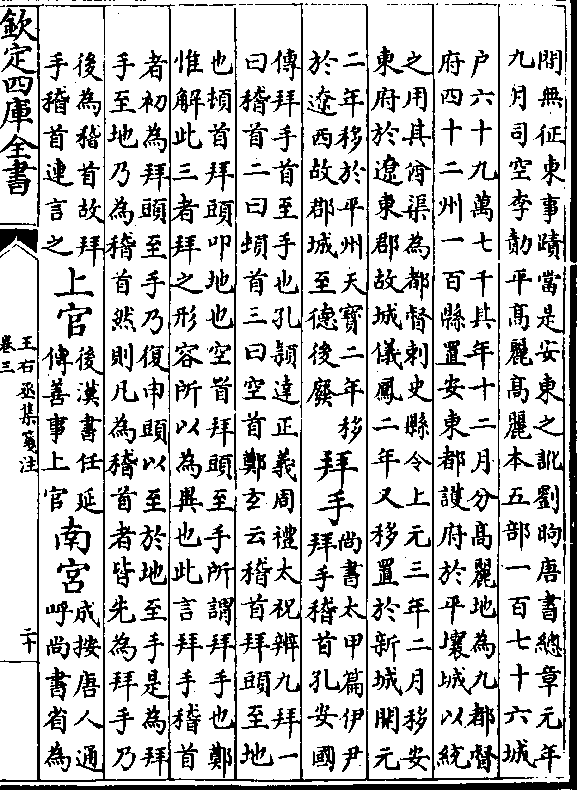 間無征東事蹟當是安東之訛劉昫唐書總章元年
九月司空李勣平髙麗髙麗本五部一百七十六城
户六十九萬七千其年十二月分髙麗地為九都督
府四十二州一百縣置安東都護府於平壤城以統
之用其酋渠為都督刺史縣令上元三年二月移安
東府於遼東郡故城儀鳳二年又移置於新城開元
二年移於平州天寳二年移
於遼西故郡城至德後廢
拜手
尚書太甲篇伊尹
拜手稽首孔安國
傳拜手首至手也孔頴達正義周禮太祝辨九拜一
曰稽首二曰頓首三曰空首鄭玄云稽首拜頭至地
也頓首拜頭叩地也空首拜頭至手所謂拜手也鄭
惟解此三者拜之形容所以為異也此言拜手稽首
者初為拜頭至手乃復申頭以至於地至手是為拜
手至地乃為稽首然則凡為稽首者皆先為拜手乃
後為稽首故拜
手稽首連言之
上官
後漢書任延
傳善事上官
南宮
成按唐人通
呼尚書省為
欽定四庫全書
王右丞集箋注
卷三
二十